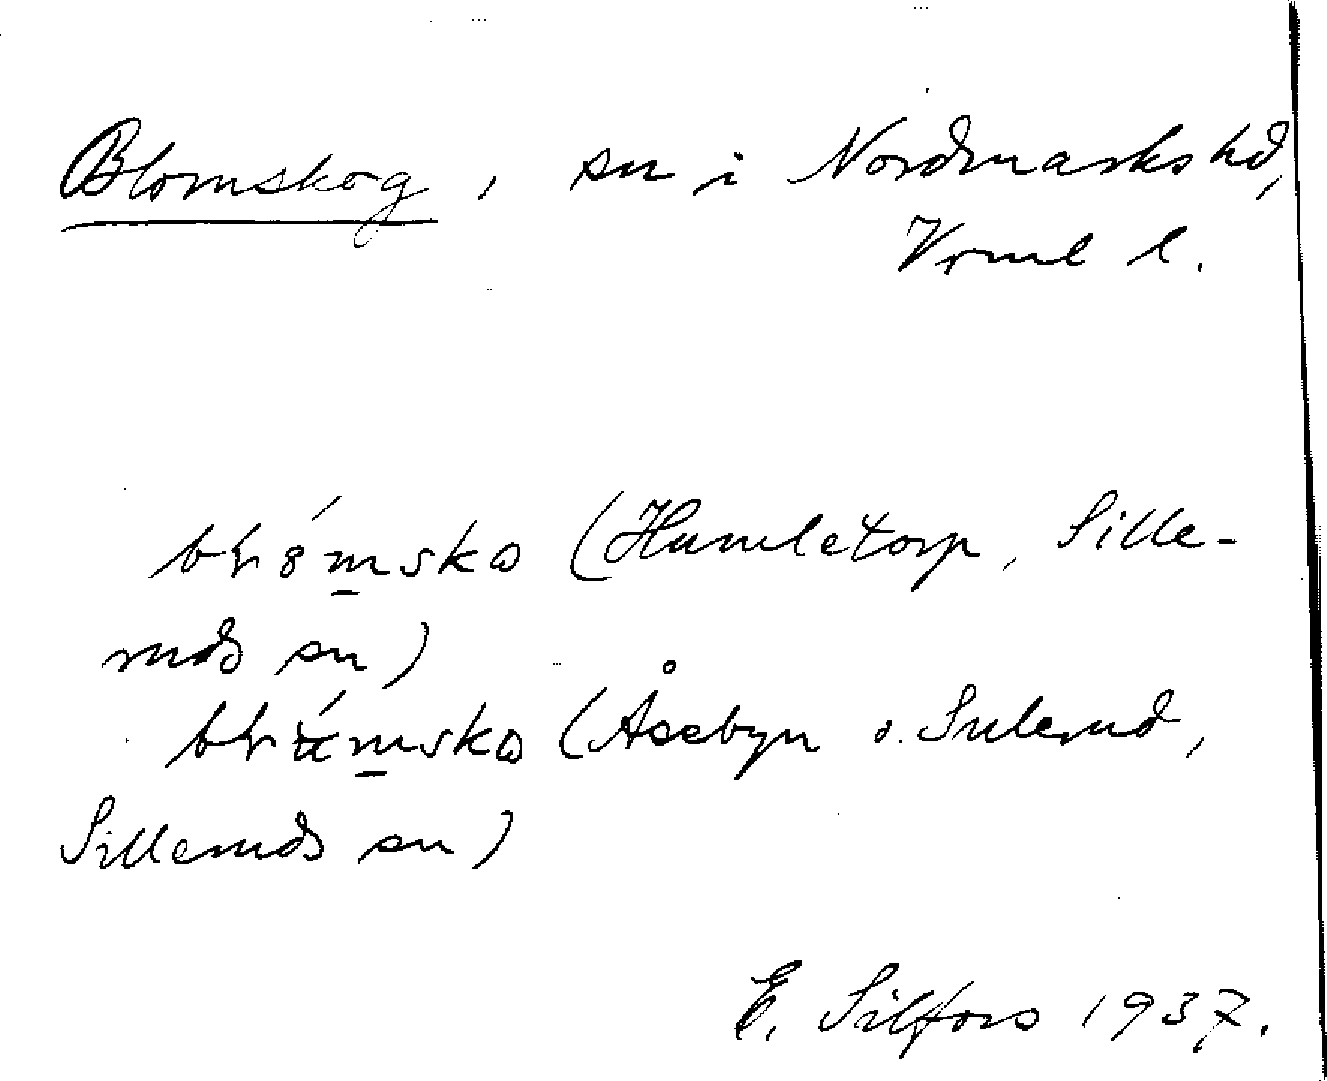 Blomskog, sn i Nordmarks hd,
Vrml l.
(Humletorp, Sille-
ruds sn)
(Åsebyn o. Sulerud,
Silleruds sn)
E. Silfors 1937.